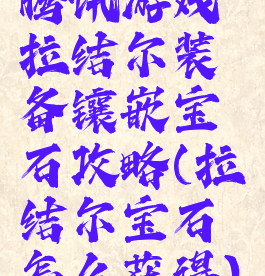 腾讯游戏
拉结尔装
备镶嵌宝
石攻略(拉
结尔宝石
怎么获得)